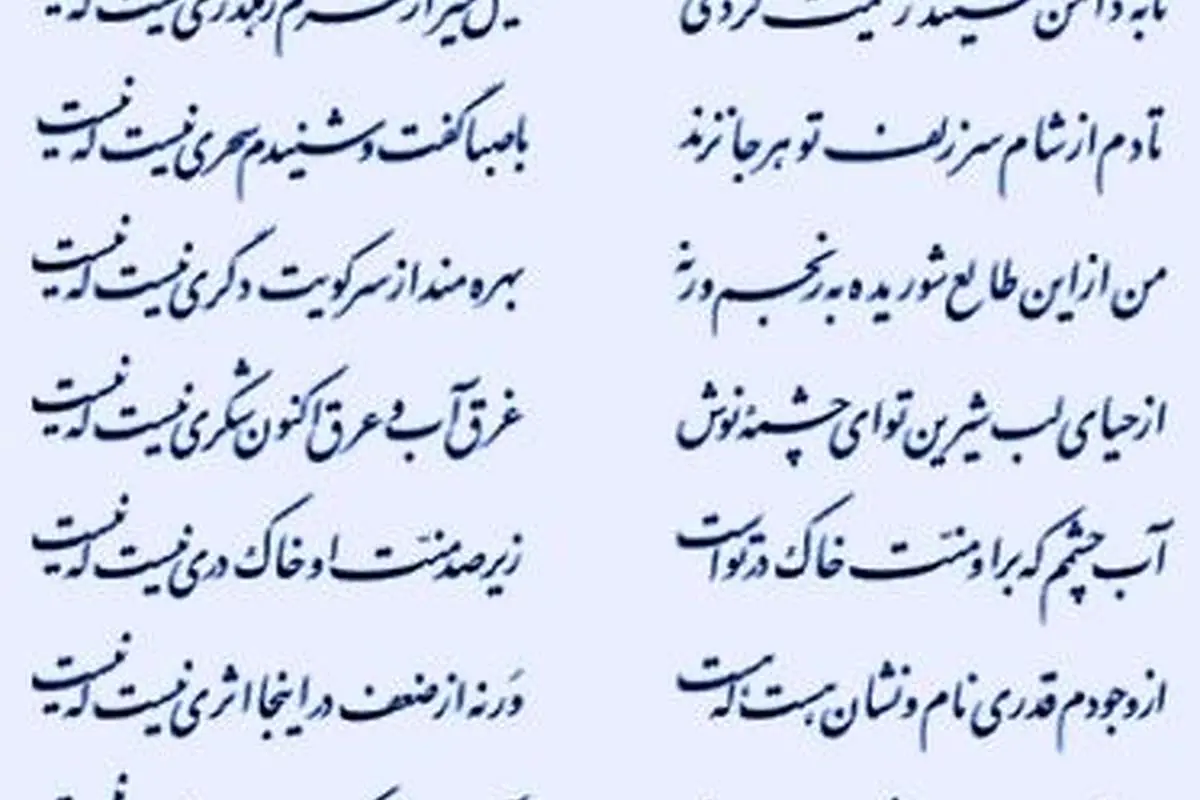 تا به دامن ننشیند ز نسیمت گردی سیل خیز از نظرم رهگذری نیست که نیست
تا دم از شام سر زلف تو هر جا نزند با صبا گفت و شنیدم سحری نیست که نیست
من از این طالع شوریده به رنجم ورنه بهره مند از سر کویت دگری نیست که نیست
از حیای لب شیرین تو ای چشمهٔ نوش غرق آب و عرق اکنون شکری نیست که نیست
آب چشمم که بر او منّت خاک در تو است زیر صد منّت او خاک دری نیست که نیست
از وجودم قدری نام و نشان هست که هست وَرنه از ضعف در اینجا اثری نیست که نیست